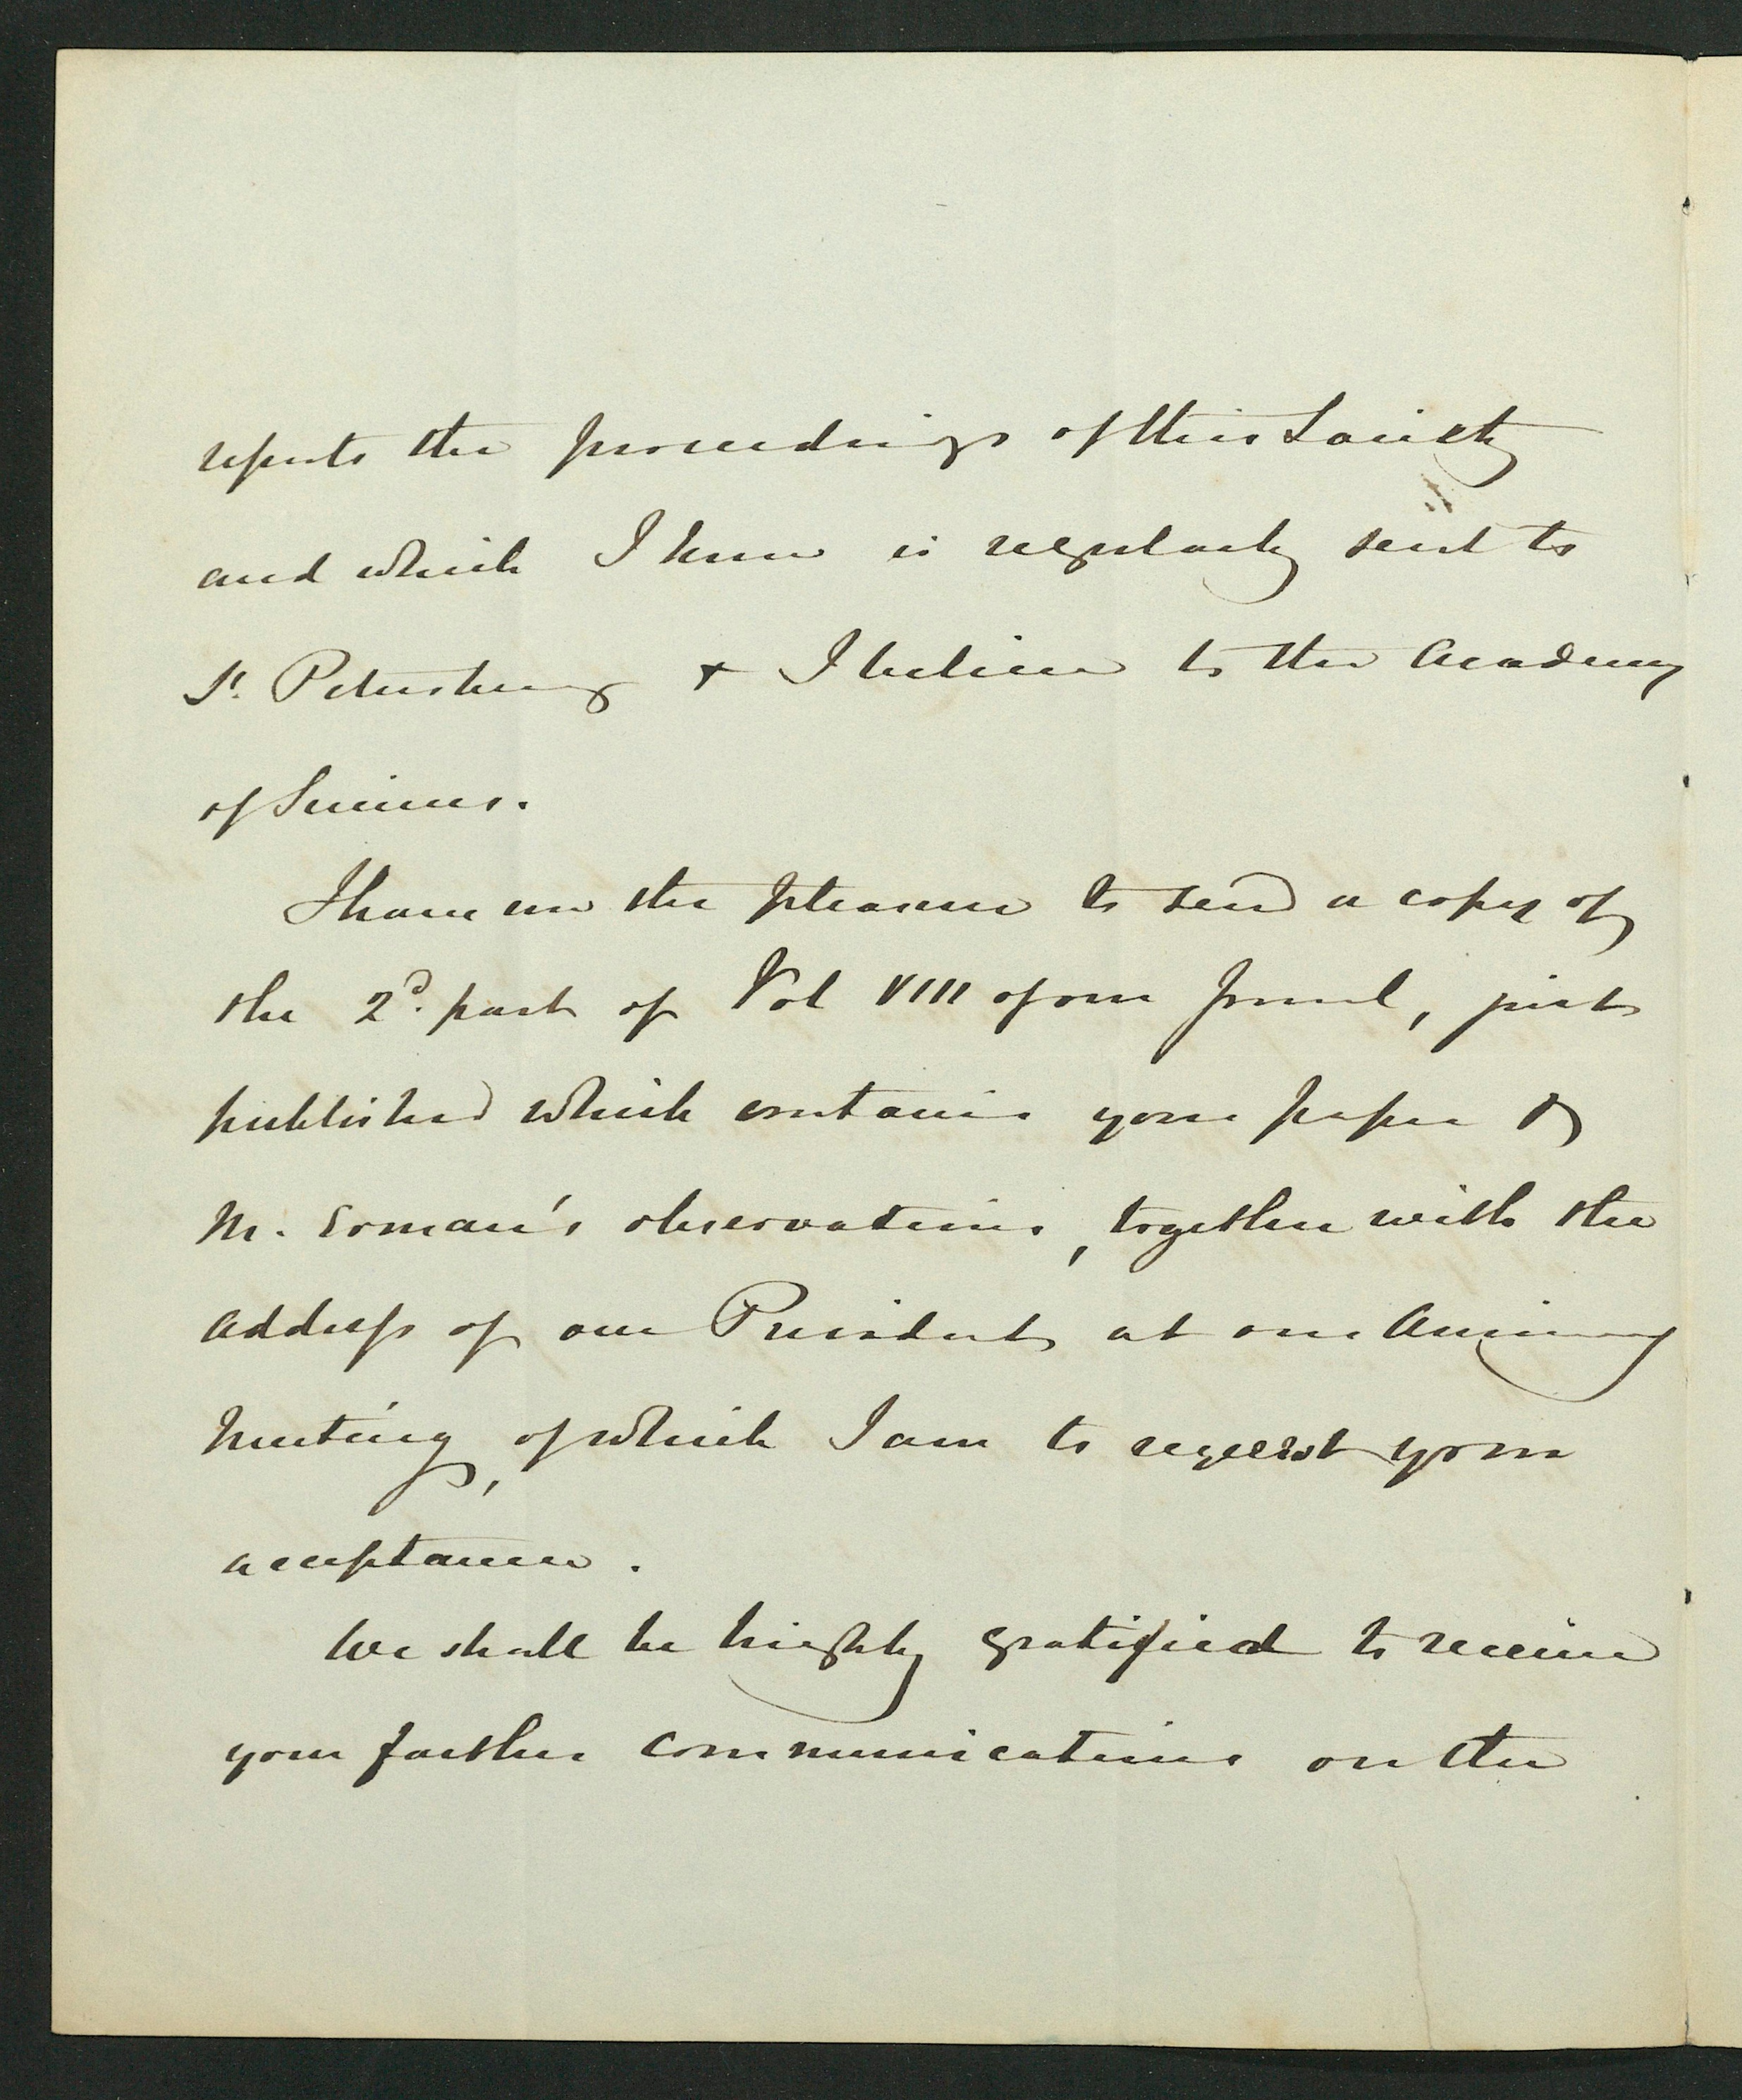 reports the proceedings of this Society
and which I know is regularly sent to
St. Petersburg + I believe to the Academy
of Sciences.
I have now the pleasure to send a copy of
the 2d. part of Vol VIII of our Journal, just
published which contains your paper &
Mr. Erman's observations, together with the
address of our President at our Anniversary
Meeting, of which I am to request your
acceptance.
We shall be highly gratified to receive
your further communications on the